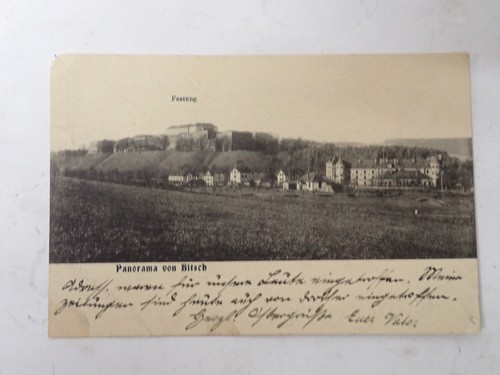 Festung
Panorama von Bitsch
Adress. waren für unsere Leute eingetroffen. Meine
zeitungen sind heute auch von dorther eingetroffen.
Herzl. Ostergrüße Euer Vater